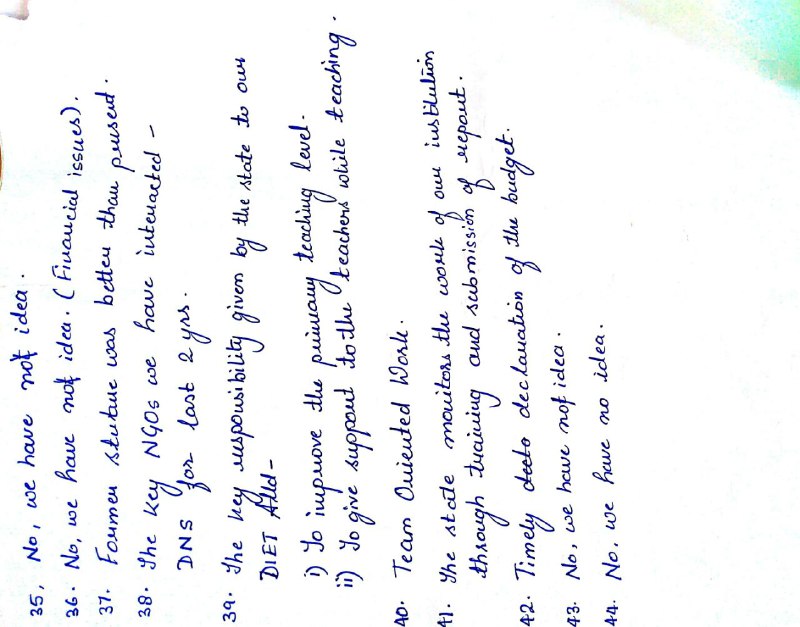 35. No, we have not idea.
36. No, we have not idea. (Financial issues).
37. Former stuture was better than present.
38. The key NGOs we have interacted -
DNS for last 2 yrs.
39. The key responsibility given by the state to our
DIET Alld-
i) To improve the primary teaching level.
ii) To give support to the teachers while teaching.
40. Team Oriented Work.
41. The state monitors the work of our institution
through training and submission of report.
42. Timely declaration of the budget.
43. No, we have not idea.
44. No, we have no idea.